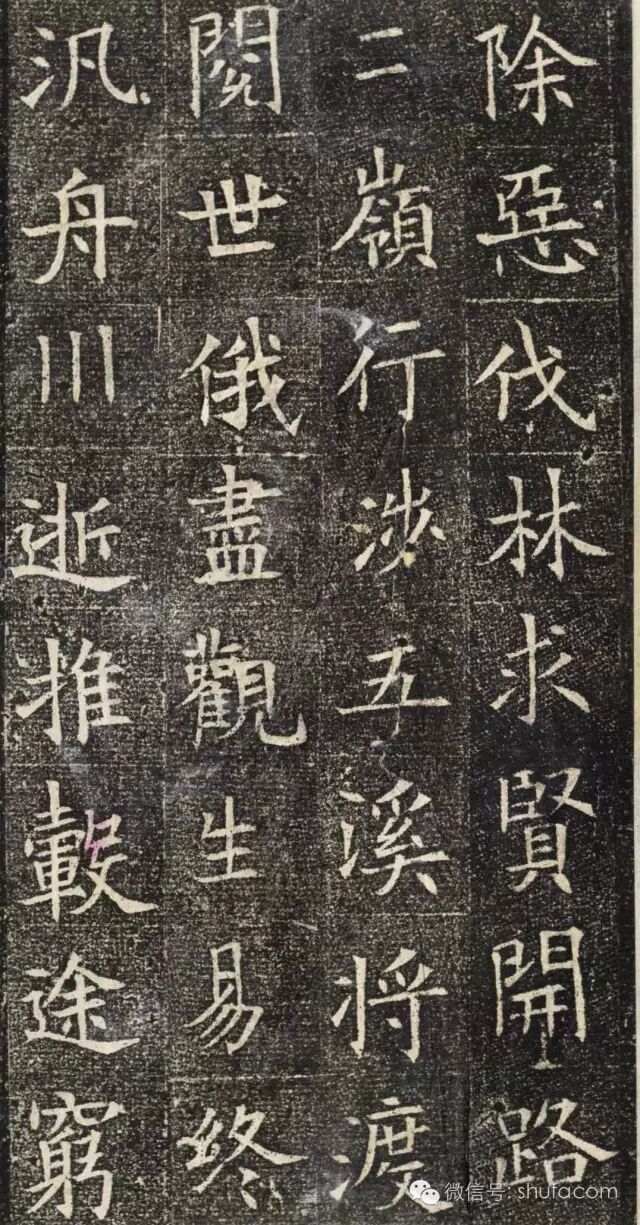 除惡伐林求賢開路
二嶺行涉五溪將渡
閱世俄盡觀生易終
汎舟川逝推轂途窮
微信号: shufacom